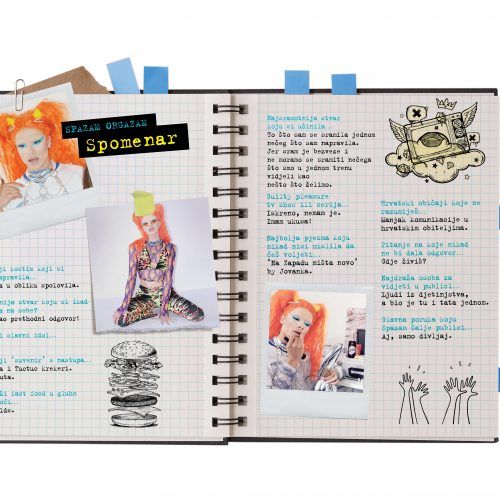 SPAZAM ORGAZAM
Spomenar
ji kostim koji si
napravila...
u obliku spolovila.
nija stvar koju si ikad
na sebe?
ao prethodni odgovor!
slavni idol...
ji 'suvenir' s nastupa...
a i Tuctuc krekeri.
uta.
ži fast food u gluho
oći...
lds.
Najsramotnija stvar
koju si učinila...
To što sam se sramila jednom
nečeg što sam napravila.
Jer sram je bezveze i
ne moramo se sramiti nečega
što smo u jednom trenu
vidjeli kao
nešto što želimo.
Guilty pleasure
tv show ili serija...
Iskreno, neznam je.
Imam ukusa!
Najbolja pjesma koju
nikad nisi mislila da
ćeš voljeti...
'Na Zapadu ništa novo'
by Jovanka.
Hrvatski običaji koje ne
razumiješ...
Manjak komunikacije u
hrvatskim obiteljima.
Pitanje na koje nikad
ne bi dala odgovor...
Gdje živiš?
Najdraža osoba za
vidjeti u publici...
Ljudi iz djetinjstva,
a bio je tu i tata jednom.
Glavna poruka koju
Spazam šalje publici...
Aj, samo divljaj.